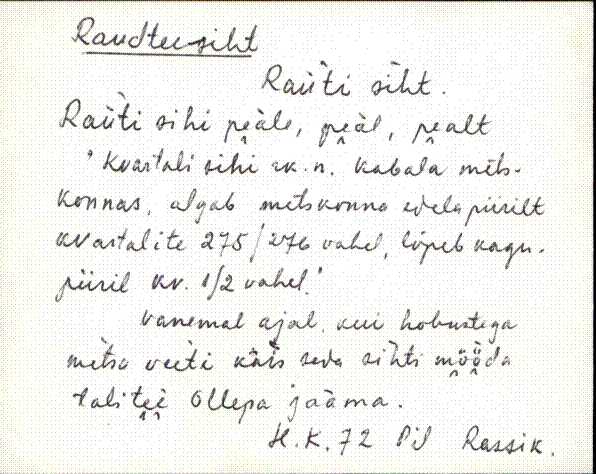 Raudtee siht
Raùti siht.
Raùti sihi peäle, peäl, pealt
"Kvartali sihi rk. n. Kabala mets-
konnas, algab metskonna edela piirilt
kvartalite 275/276 vahel, lõpeb kagu-
piiril kv. 1/2 vahel."
Vanemal ajal, kui hobustega
metsa veeti käis seda sihti mööda
talitee Ollepa jaama.
H. K. 72 Pil Rassik.